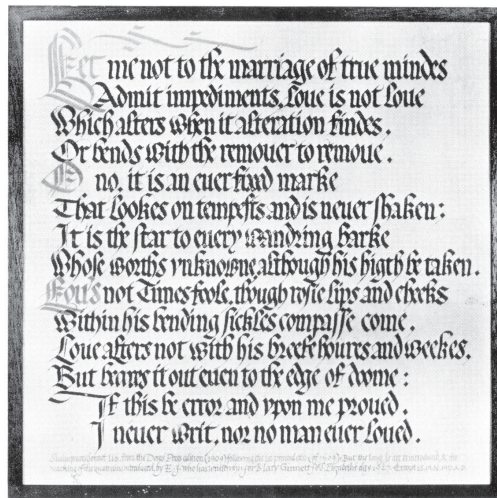 Let me not to the marriage of true mindes
Admit impediments, Loue is not Loue
Which alters when it alteration findes,
Or bends with the remouer to remoue.
O no, it is an euer fixed marke
That lookes on tempests and is neuer shaken:
It is the star to euery wandring barke
Whose worths vnknowne, although his higth be taken.
Lou's not Times foole, though rosie lips and cheeks
Within his bending sickles compasse come,
Loue alters not with his breefe houres and weekes,
But beares it out euen to the edge of doome:
If this be error and vpon me proued,
I neuer writ, nor no man euer loued.